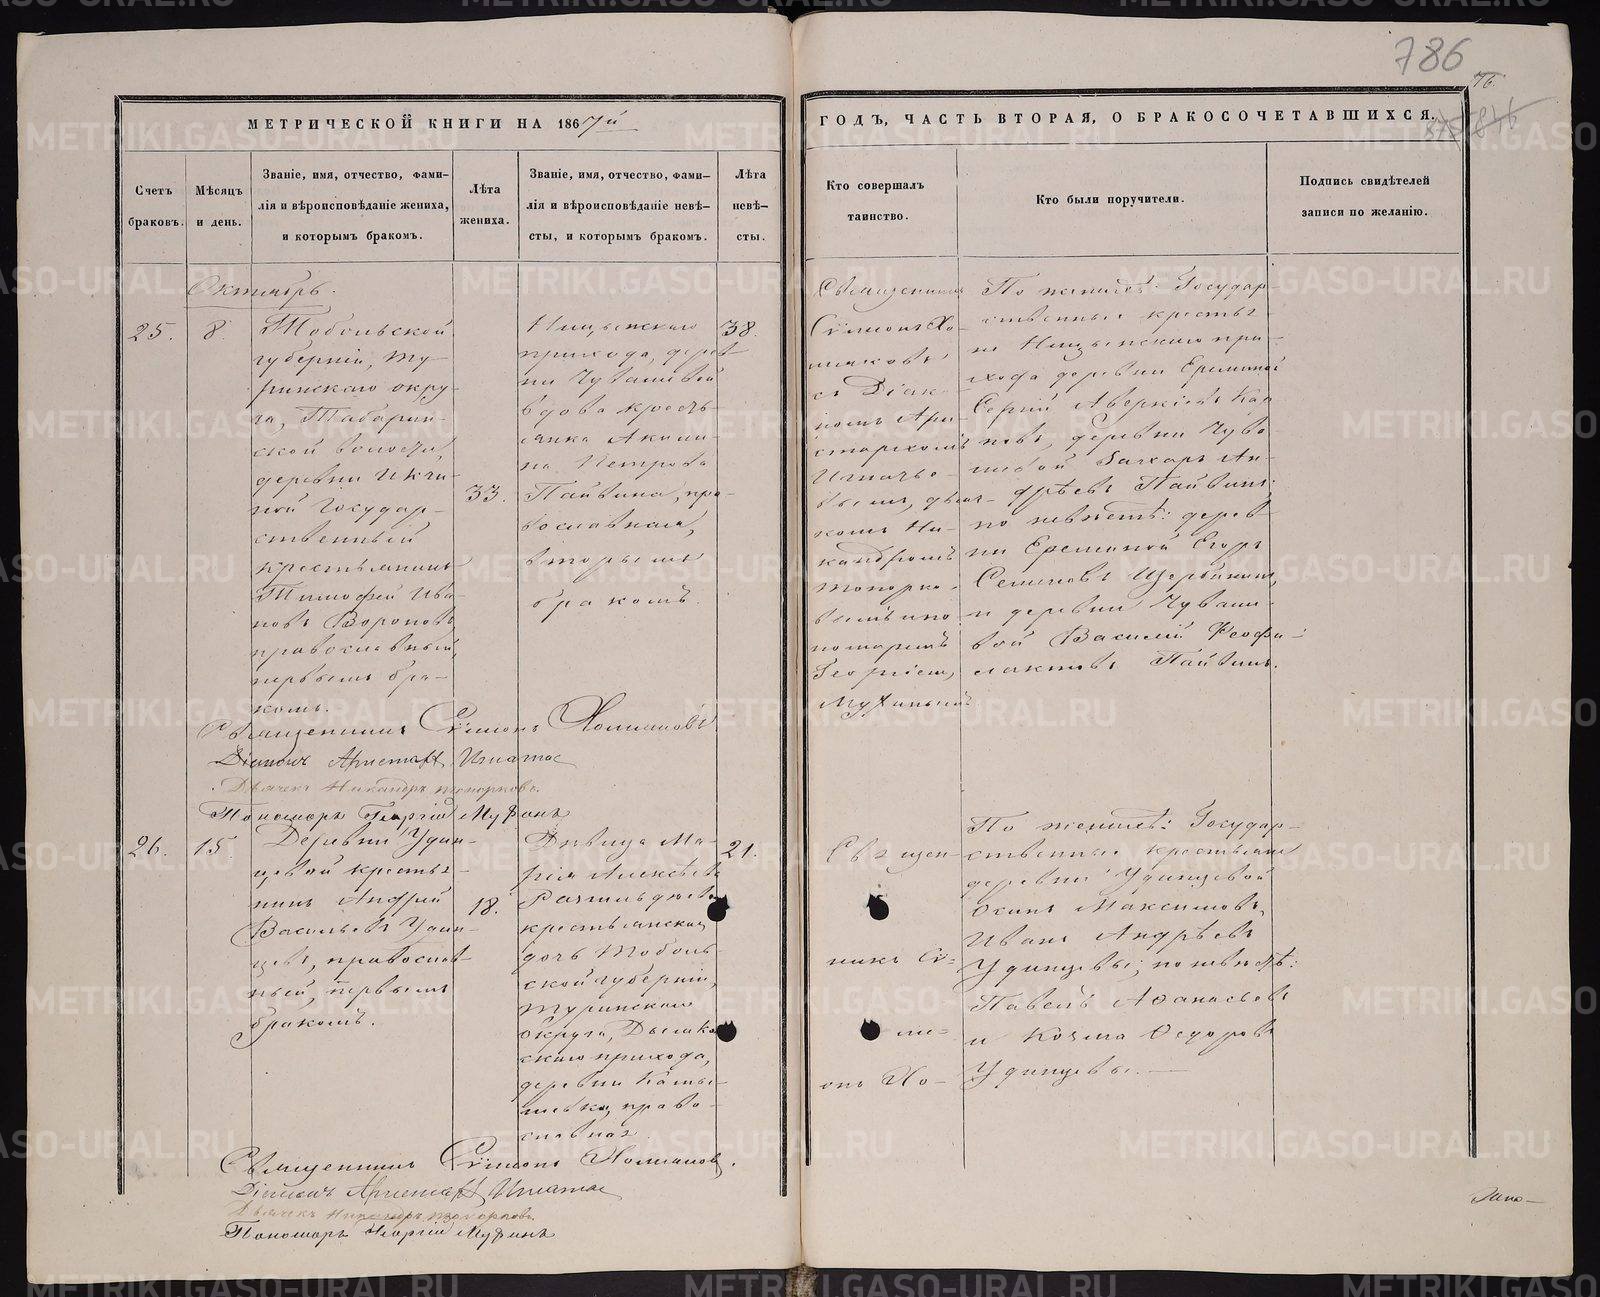 786
76.
МЕТРИЧЕСКОЙ КНИГИ НА 1867й
ГОДЪ, ЧАСТЬ ВТОРАЯ, О БРАКОСОЧЕТАВШИХСЯ.
Счетъ
браковъ.
Мѣсяцъ
и день.
Званіе, имя, отчество, фами-
лія и вѣроисповѣданіе жениха,
и которымъ бракомъ.
Лѣта
жениха.
Званіе, имя, отчество, фами-
лія и вѣроисповѣданіе невѣ-
сты, и которымъ бракомъ.
Лѣта
невѣ-
сты.
Кто совершалъ
таинство.
Кто были поручители.
Подпись свидѣтелей
записи по желанію.
Октябрь.
25.
8.
Тобольской
губерніи, Ту-
ринскаго окру-
га, Табарин-
ской волости,
деревни
ной Государ-
ственный
крестьянинъ
Тимофей Ива-
новъ Вороновъ,
православный,
первымъ бра-
комъ.
33.
Ницынскаго
прихода, дерев-
ни Чувашевой
вдова крестья-
янка Акили-
на Петрова
Пайвина, пра-
вославная,
вторымъ
бракомъ.
38.
Священникъ
Сѵмонъ Хо-
мяковъ
съ Діак-
номъ Ари-
стархомъ
Игнатье-
вымъ, дьяч-
комъ Ни-
кандромъ
Топорко-
вымъ и по-
номаремъ
Георгіемъ
Мухинымъ
По женихѣ: Государ-
ственные крестья-
не Ницынскаго при-
хода деревни Ереминой
Сергій Аверкіевъ
деревни Чува-
шевой Захаръ Ан-
дрѣевъ Пайвинъ;
по невѣстѣ: дерев-
ни Ереминой Егоръ
Семеновъ Щербининъ,
и деревни Чуваше-
вой Василій Феофи-
лактовъ Пайвинъ.
Священникъ Сѵмонъ Хомяковъ
Діаконъ Аристархъ Игнатьевъ
Дьячекъ Никандръ Топорковъ.
Пономарь Георгій Мухинъ
26.
15
Деревни Удин-
цевой крестья-
нинъ Андрей
Васильевъ Удин-
цевъ, православ-
ный, первымъ
бракомъ.
18.
Дѣвица Ма-
рія Алексѣева
крестьянская
дочь Тоболь-
ской губерніи,
Туринскаго
округа,
скаго прихода,
деревни
право-
славная
21.
Священ-
никъ Сѵ-
мо-
онъ Хо-
По женихѣ: Государ-
ственные крестьяне
деревни Удинцевой
Осипъ Максимовъ,
Иванъ Андрѣевъ
Удинцевы; по невѣстѣ:
Павелъ Афанасьевъ
и Козма Ѳедоровъ
Удинцевы.
Священникъ Сѵмонъ Хомяковъ.
Діаконъ Аристархъ Игнатьевъ
Дьячекъ Никандръ Топорковъ
Пономарь Георгій Мухинъ